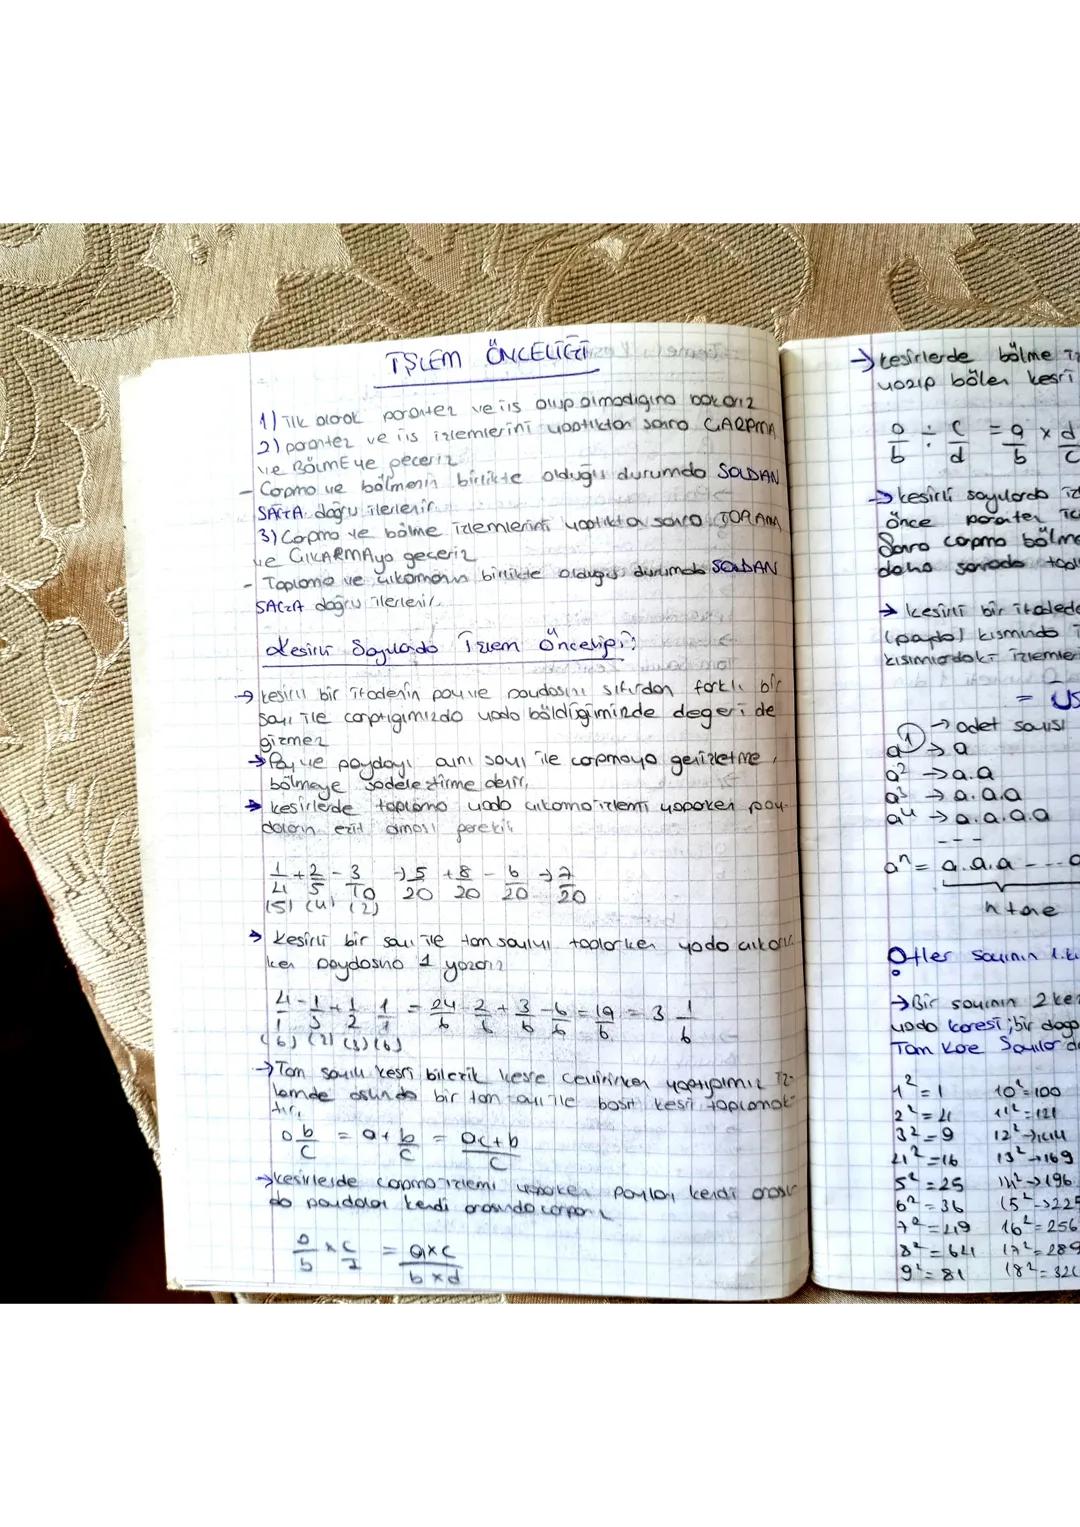 İŞLEM ÖNCELİĞİ
1) İlk olarak parantez ve üs olup olmadığına bakarız
2) parantez ve üs işlemlerini yaptıktan sonra ÇARPMA
ve BÖLMEye geçeriz
- Çarpma ve bölmenin birlikte olduğu durumda SOLDAN
SAĞA doğru ilerlenir
3) Çarpma ve bölme işlemlerini yaptıktan sonra TOPLAMA
ve ÇIKARMAya geçeriz
- Toplama ve çıkarmanın birlikte olduğu durumda SOLDAN
SAĞA doğru ilerlenir.
Kesirli Sayılarda İşlem Önceliği:
→ kesirli bir ifadenin pay ve paydasını sıfırdan farklı bir
sayı ile çarptığımızda yada böldüğümüzde değeri de
ğişmez
→ Pay ve paydayı aynı sayı ile çarpmaya genişletme,
bölmeye sadeleştirme denir.
→ kesirlerde toplama yada çıkarma işlemi yaparken pay-
daların eşit olması gerekir
1/4 + 2/5 - 3/10 → 5/20 + 8/20 - 6/20 → 7/20
(5) (4) (2)
→ kesirli bir sayı ile tam sayıyı toplarken yada çıkarır
ken paydasına 1 yazarız
4/1 - 1/3 + 1/2 - 1/1 = 24/6 - 2/6 + 3/6 - 6/6 = 19/6 = 3 1/6
(6) (2) (3) (6)
→ Tam sayılı kesri bileşik kesre çevirirken yaptığımız iş-
lemde aslında bir tam sayı ile basit kesri toplamak-
tır.
a b/c = a + b/c = ac+b/c
→ kesirlerde çarpma işlemi yaparken paylar kendi arasın
da paydalar kendi arasında çarpılır
a/b x c/d = axc/bxd
→ kesirlerde bölme
yazıp bölen kesri
a/b ÷ c/d = a/b x d/c
→ kesirli sayılarda
önce parantez
Sonra çarpma bölme
daha sonrada
→ kesirli bir ifadede
(payda) kısmında
kısımlardaki işlemle
= ÜS
→ adet sayısı
a¹ → a
a² → a.a
a³ → a.a.a
a⁴ → a.a.a.a
- - -
aⁿ = a.a.a - - - a
n tane
→ Bir sayının 2
yada karesi; bir doğa
Tam kare Sayılar
1²=1 10²=100
2²=4 11²=121
3²=9 12²→144
4²=16 13²→169
5²=25 14²→196
6²=36 15²→225
7²=49 16²=256
8²=64 17²=289
9²=81 18²=324